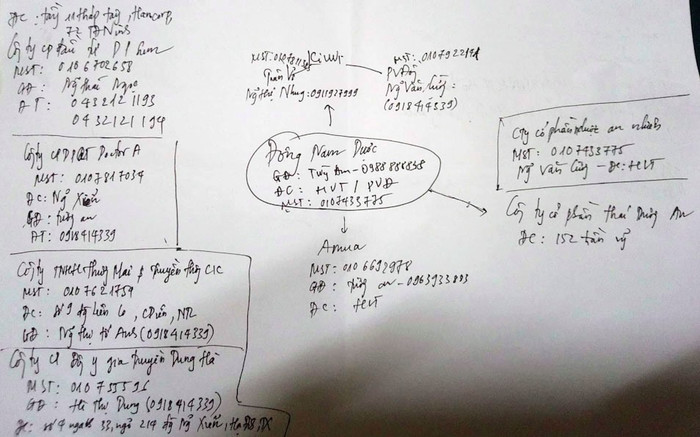 ĐC: tầng 11 tháp tây, Hancorp,
72 TĐ Ninh
Công ty cp đầu tư DP
MST: 0106702658
GĐ: Ng Thái Ngọc
ĐT: 0432121193
0432121194
Công ty CP DP QT Doctor A
MST: 0107817034
ĐC: Ng Xiển
GĐ: Tường An
ĐT: 0918414339
Công ty TNHH thương Mại & truyền thông CIC
MST: 0107621759
ĐC: số 9 liền 6, CDiễn, NTL
GĐ: Ng thị tú Anh (0918414339)
Công ty CP Đông y gia truyền Dung Hà
MST: 010755596
GĐ: Hà Thị Dung (0918414339)
ĐC: số 4 ngách 33, ngõ 214 đg Ng Xiển, Hạ Đình, TX
MST:
Ng thị Nhung: 0911927999
MST:
PVĐ
Ng Văn Lũy:
(0918414339)
Đông Nam Dược
GĐ: Tường An - 0988856858
ĐC: HVT / PVĐ
MST: 0107433775
Amua
MST: 0106692978
GĐ: Tường an - 0963933883
ĐC: HVT
Cty cổ phần dược an nhiên
MST: 0107433775
Ng Văn Lũy - ĐC: HVT
Công ty cổ phần thái Dương An
ĐC: 152 tân mỹ